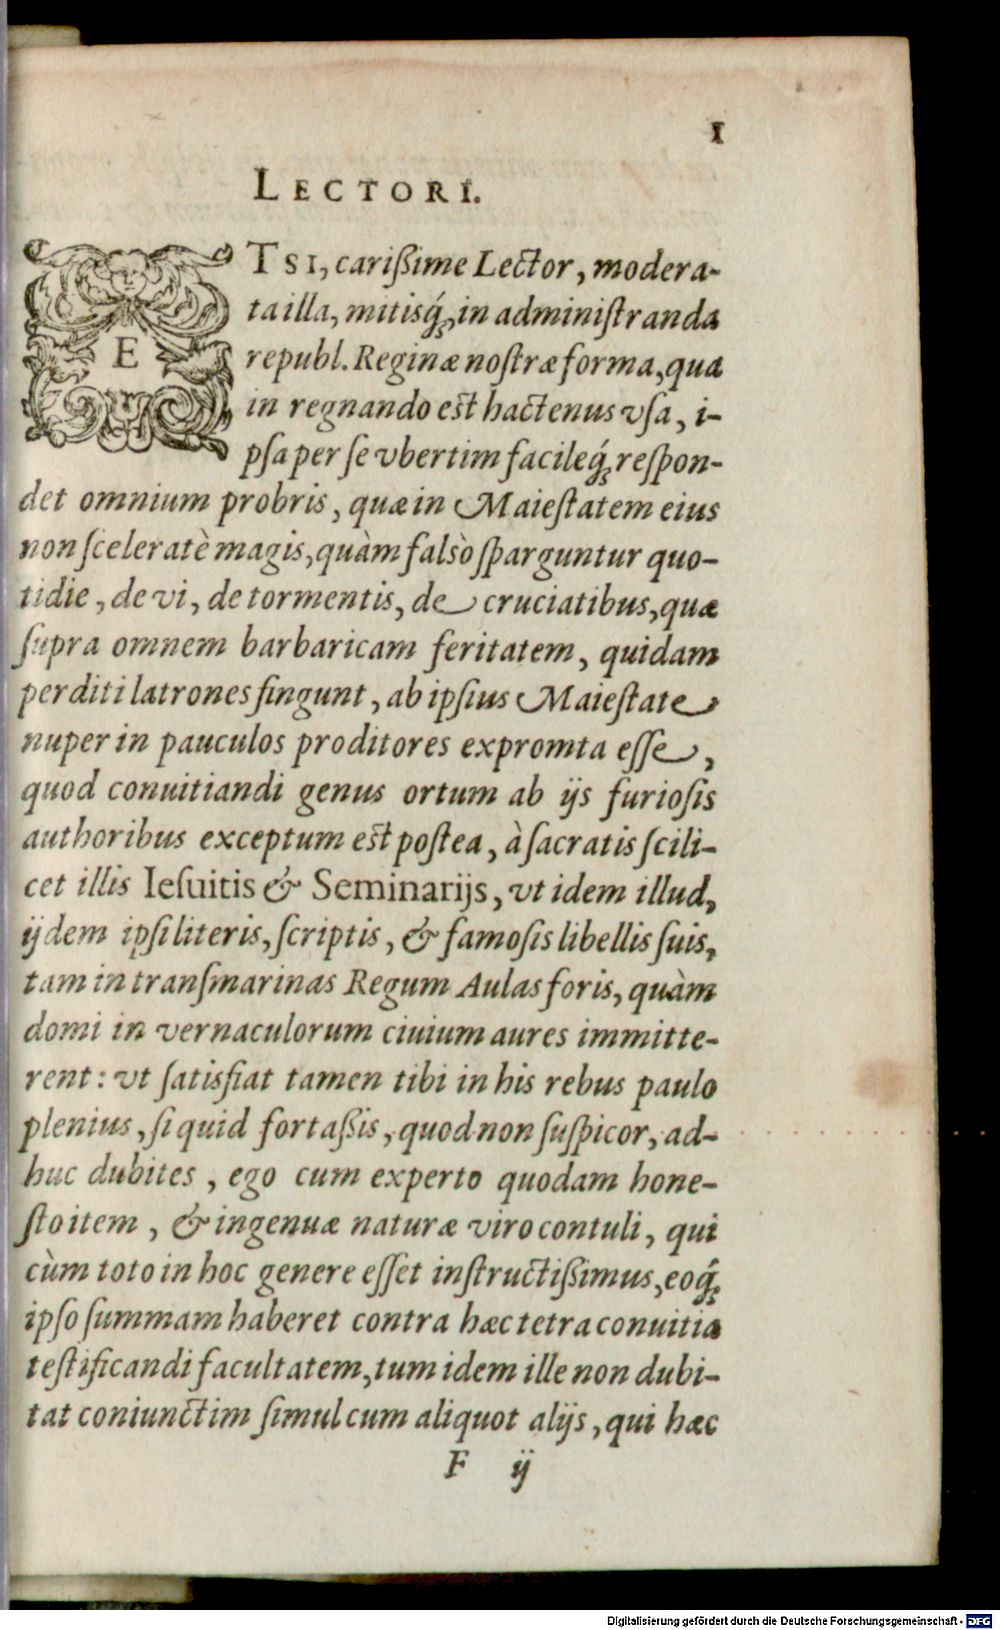 1
LECTORI.
ETSI, carißime Lector, modera-
ta illa, mitisq́;, in adminiſtranda
republ. Reginæ noſtræ forma, qua
in regnando est hactenus vſa, i-
pſa per ſe vbertim facileq́; reſpon-
det omnium probris, quæ in Maieſtatem eius
non ſceleratè magis, quàm falsò ſparguntur quo-
tidie, de vi, de tormentis, de cruciatibus, quæ
ſupra omnem barbaricam feritatem, quidam
perditi latrones fingunt, ab ipſius Maieſtate
nuper in pauculos proditores expromta eſſe,
quod conuitiandi genus ortum ab ijs furioſis
authoribus exceptum est poſtea, à ſacratis ſcili-
cet illis Ieſuitis & Seminarijs, vt idem illud,
ijdem ipſi literis, ſcriptis, & famoſis libellis ſuis,
tam in tranſmarinas Regum Aulas foris, quàm
domi in vernaculorum ciuium aures immitte-
rent: vt ſatisfiat tamen tibi in his rebus paulo
plenius, ſi quid fortaßis, quod non ſuſpicor, ad-
huc dubites, ego cum experto quodam hone-
ſto item, & ingenuæ naturæ viro contuli, qui
cùm toto in hoc genere eſſet inſtructißimus, eoq́;
ipſo ſummam haberet contra hæc tetra conuitia
teſtificandi facultatem, tum idem ille non dubi-
tat coniunctim ſimul cum aliquot alijs, qui hæc
F ij
Digitalisierung gefördert durch die Deutsche Forschungsgemeinschaft - DFG